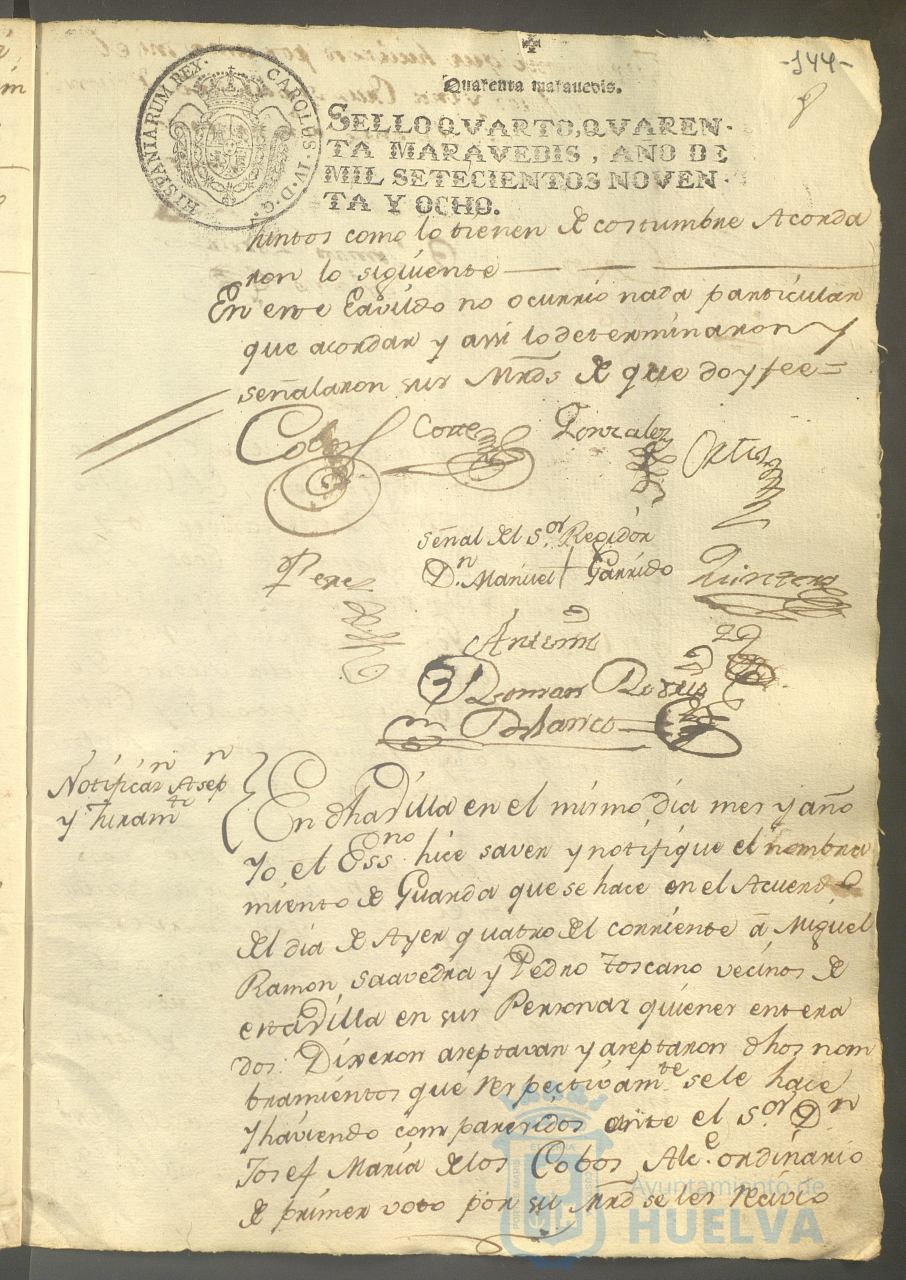 -144-
Quarenta marauedis.
HISPANIARUM REX. CAROLUS IV. D. G.
SELLO QVARTO, QVAREN-
TA MARAVEDIS, AÑO DE
MIL SETECIENTOS NOVEN-
TA Y OCHO.
juntos como lo tienen de costumbre Acorda
ron lo siguiente
En este Cavildo no ocurrio nada particular
que acordar y assi lo determinaron y
señalaron sus Mrds de que doy fee=
Cobos Cortes Gonzalez Ortiz
señal del S.or Regidor
Perez D.n Manuel + Garrido Quintero
Antemi
Roman Rodrig
Blanco
Notificaz.n Asep.n
y Juram.to
En dha Villa en el mismo dia mes y año
Yo el Ess.no hice saver y notifique el nombra
miento de Guarda que se hace en el Acuerdo
del dia de Ayer quatro del corriente â Miguel
Ramon Saavedra y Pedro Toscano vecinos de
esta Villa en sus Personas quienes entera
dos: Dixeron aseptavan y aseptaron dhos nom
bramientos que respectivam.te se le hace
y haviendo comparesidos ante el S.or D.n
Josef Maria de los Cobos Alc.e ordinario
de primer voto por su Mrd se les recivio
Ayuntamiento de
HUELVA